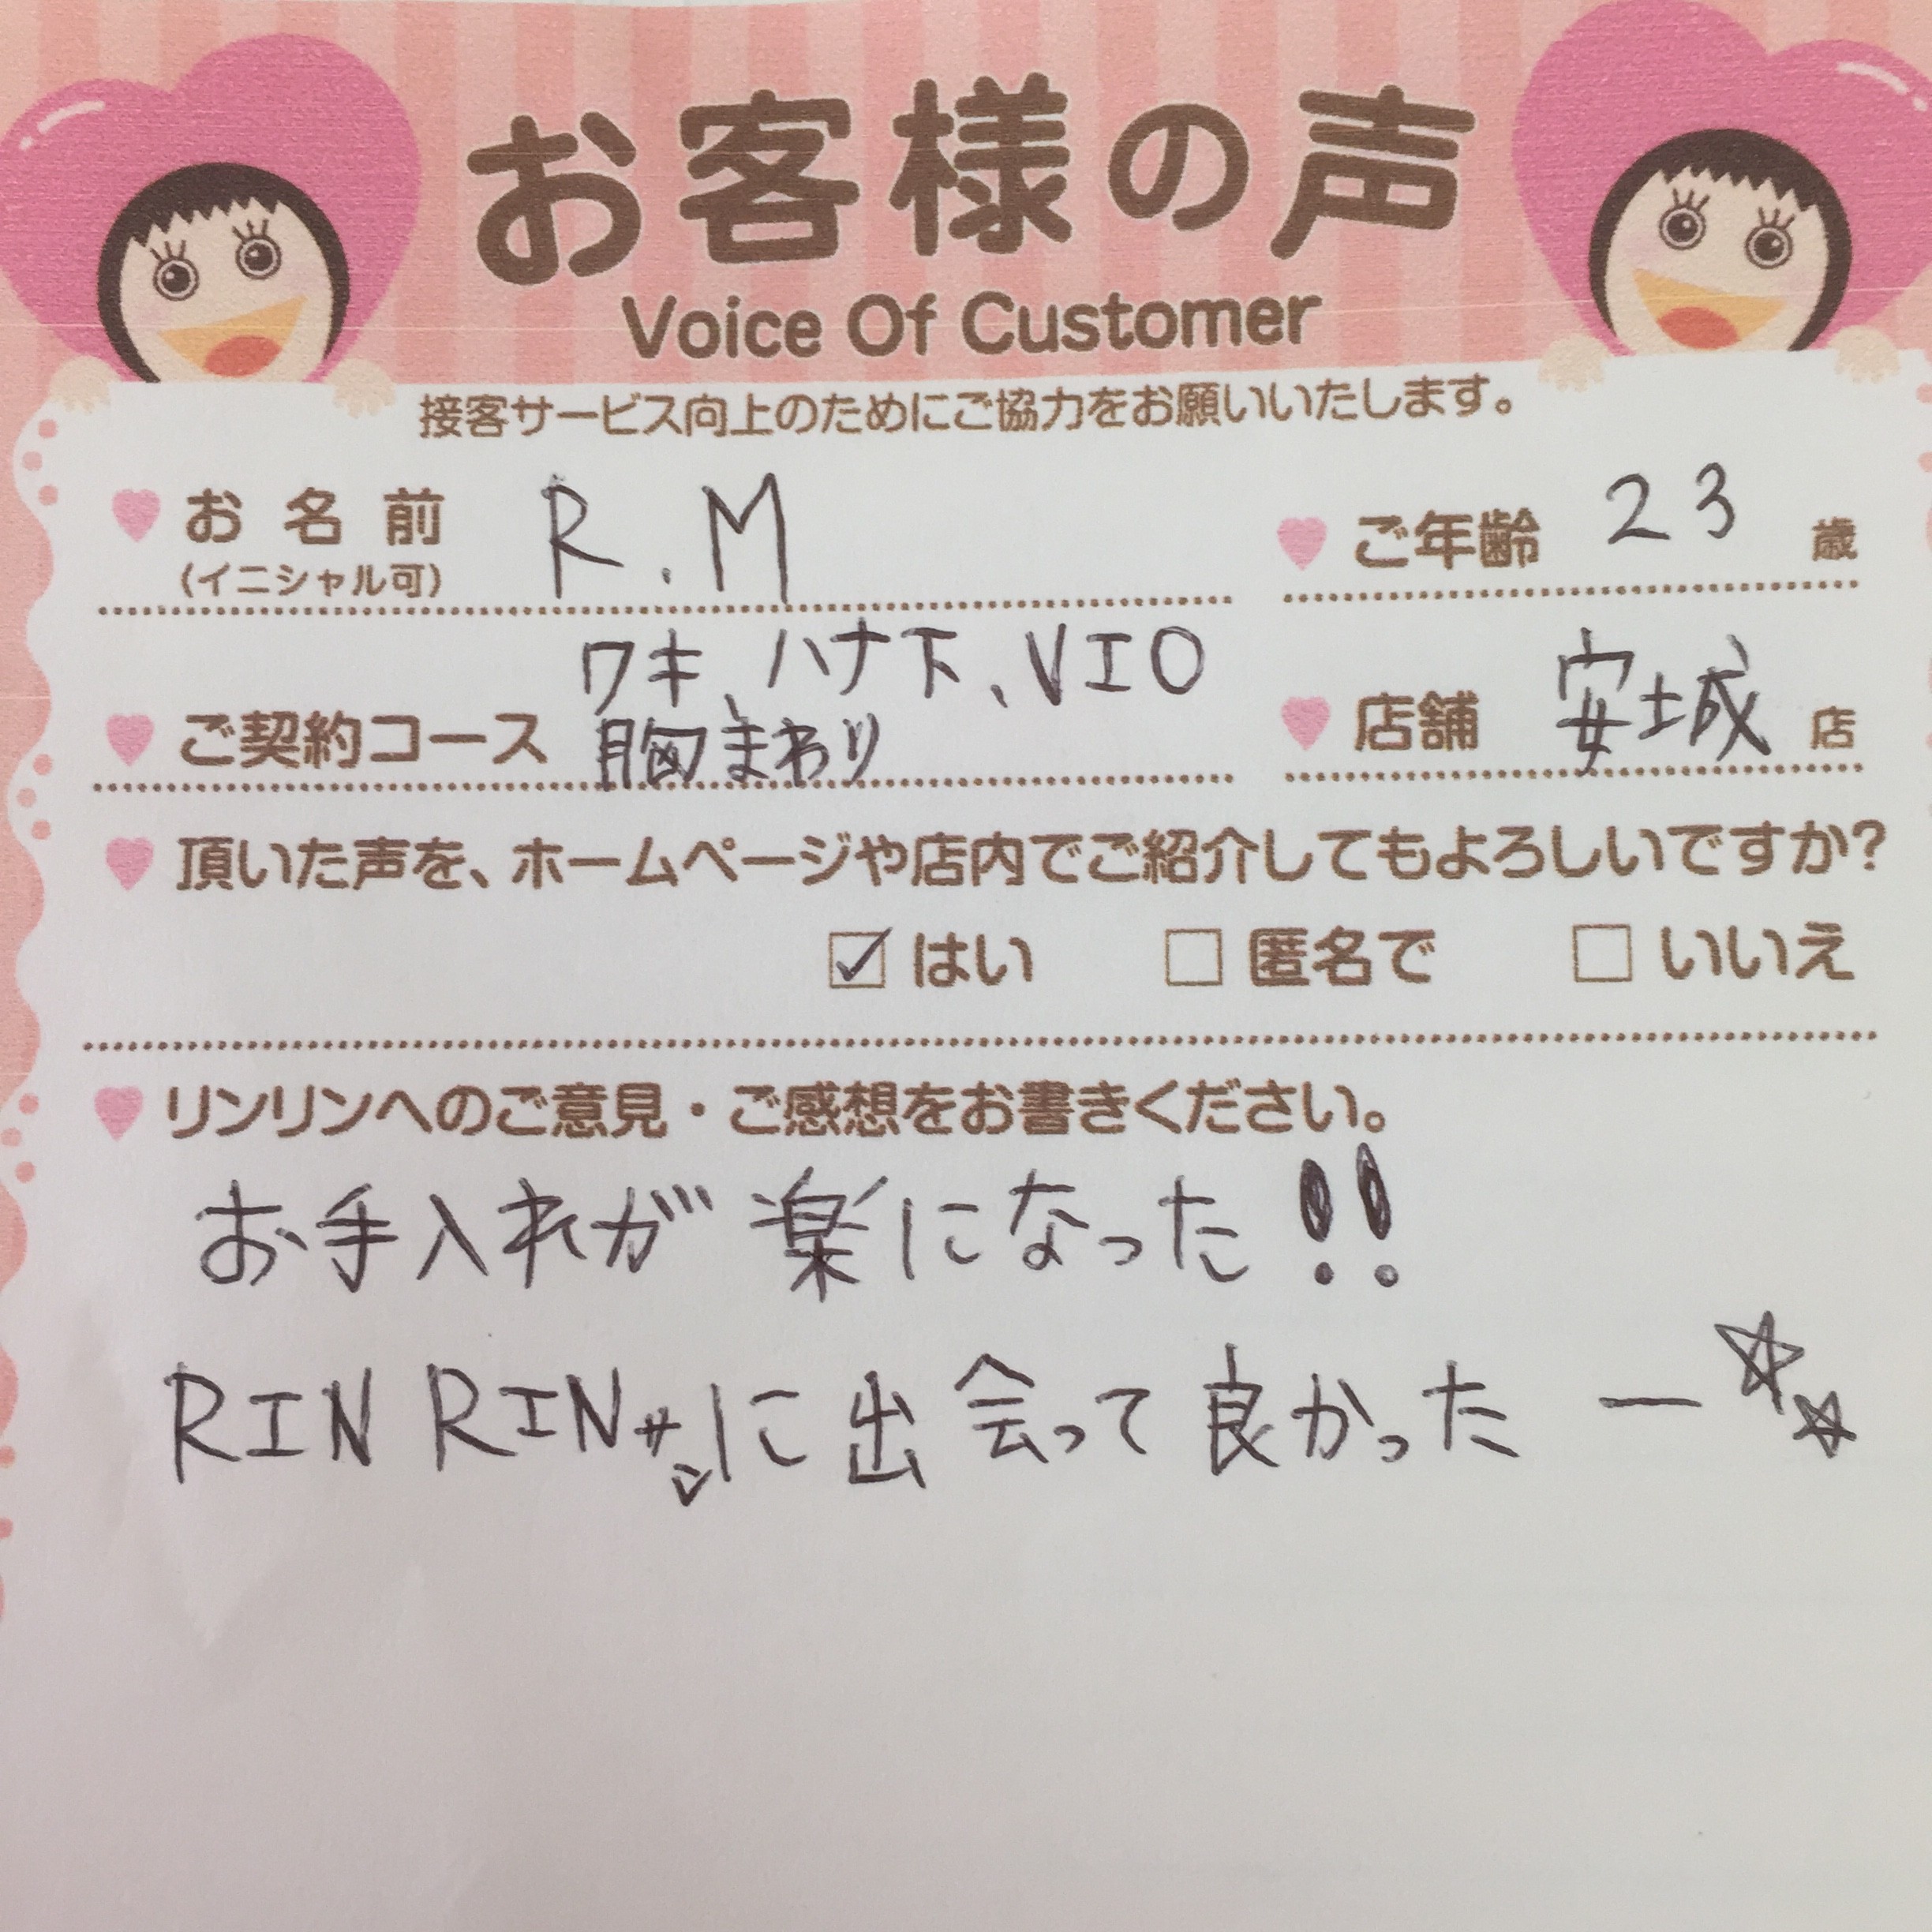 お客様の声
Voice Of Customer
接客サービス向上のためにご協力をお願いいたします。
お名前 R.M ご年齢 23 歳
(イニシャル可)
ワキ、ハナ下、VIO
ご契約コース 胸まわり 店舗 安城 店
頂いた声を、ホームページや店内でご紹介してもよろしいですか?
はい 匿名で いいえ
リンリンへのご意見・ご感想をお書きください。
お手入れが楽になった!!
RIN RINサンに出会って良かったー☆☆